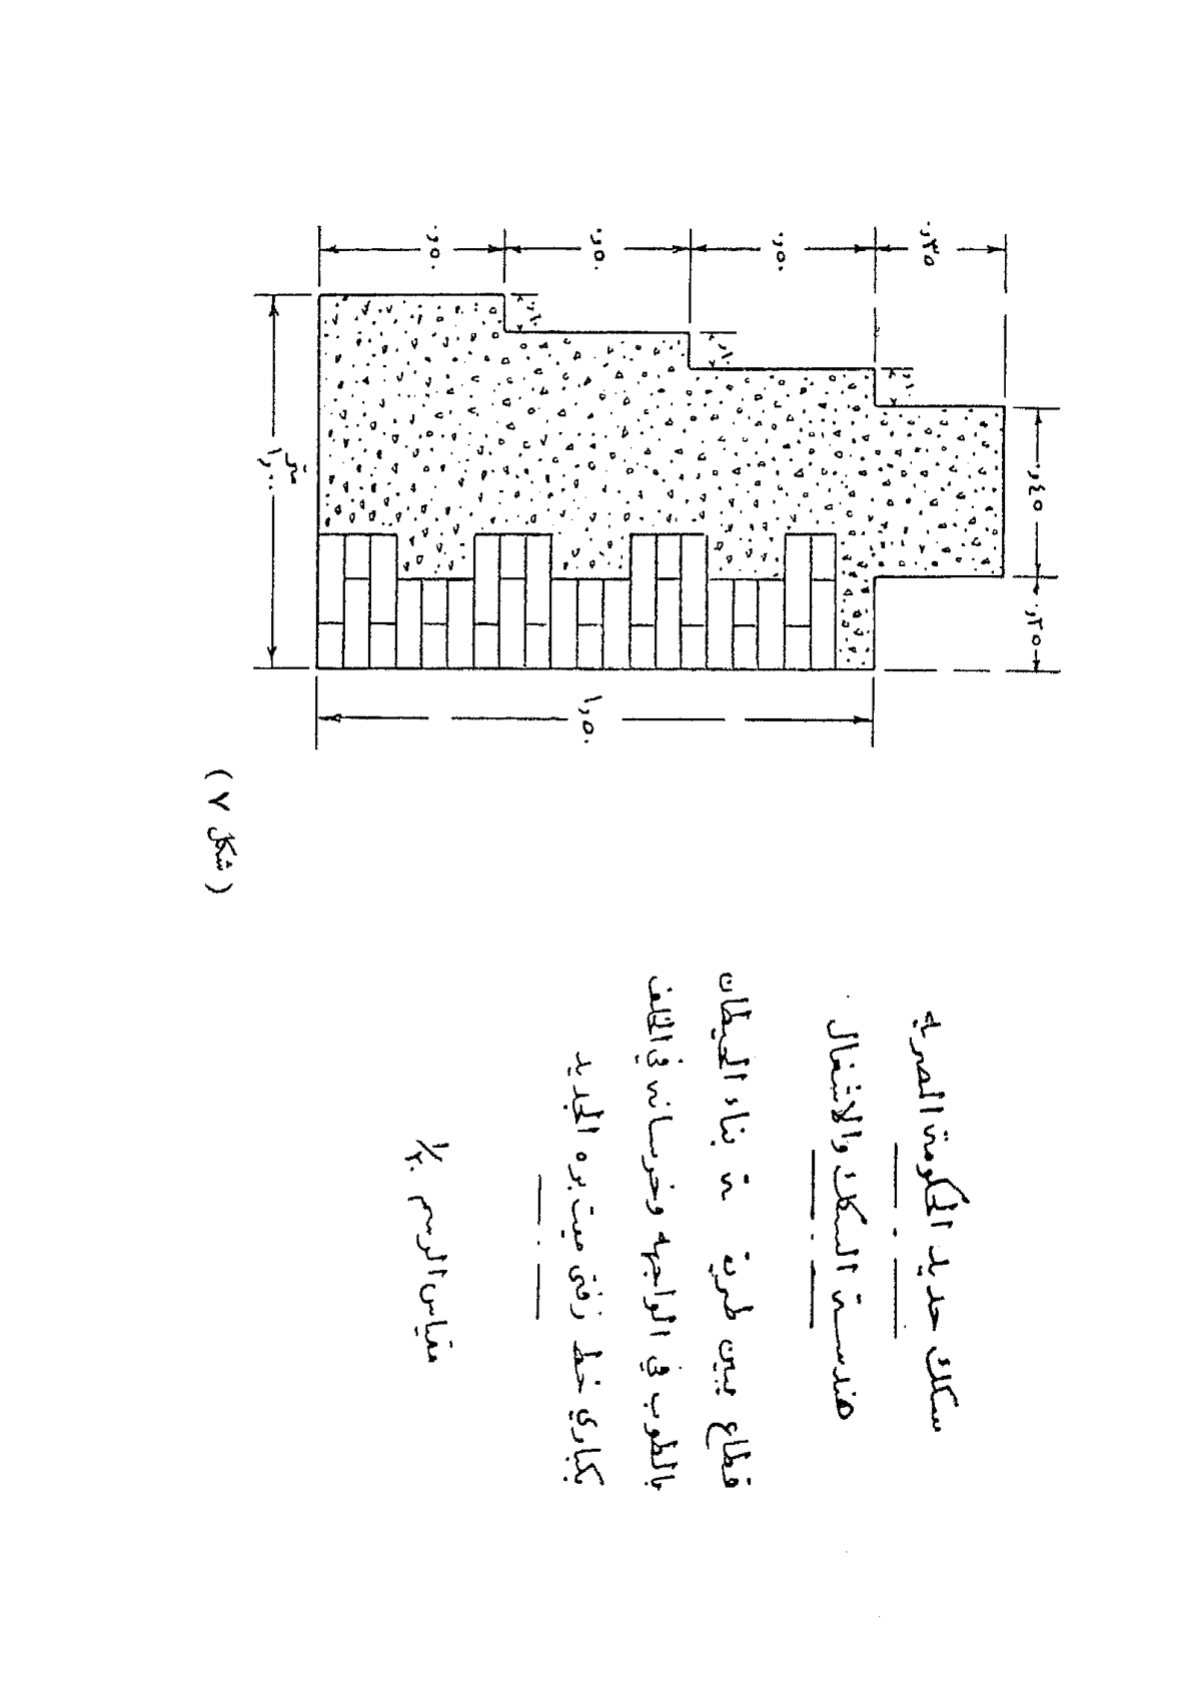 سكك حديد الحكومة المصرية
هندسة السكك والاشغال
قطاع يبين طريقة بناء الحيطان
بالطوب في الواجهه وخرسانه في الخلف
بكباري خط زفتى ميت بره الجديد
مقياس الرسم ١/٢٠
٠٫٤٥
٠٫٢٥
٠٫٣٥
٠٫٥٠
٠٫٥٠
٠٫٥٠
٠٫١٠
٠٫١٠
٠٫١٠
١٫٥٠
١٫٠٠ متر
( شكل ٧ )